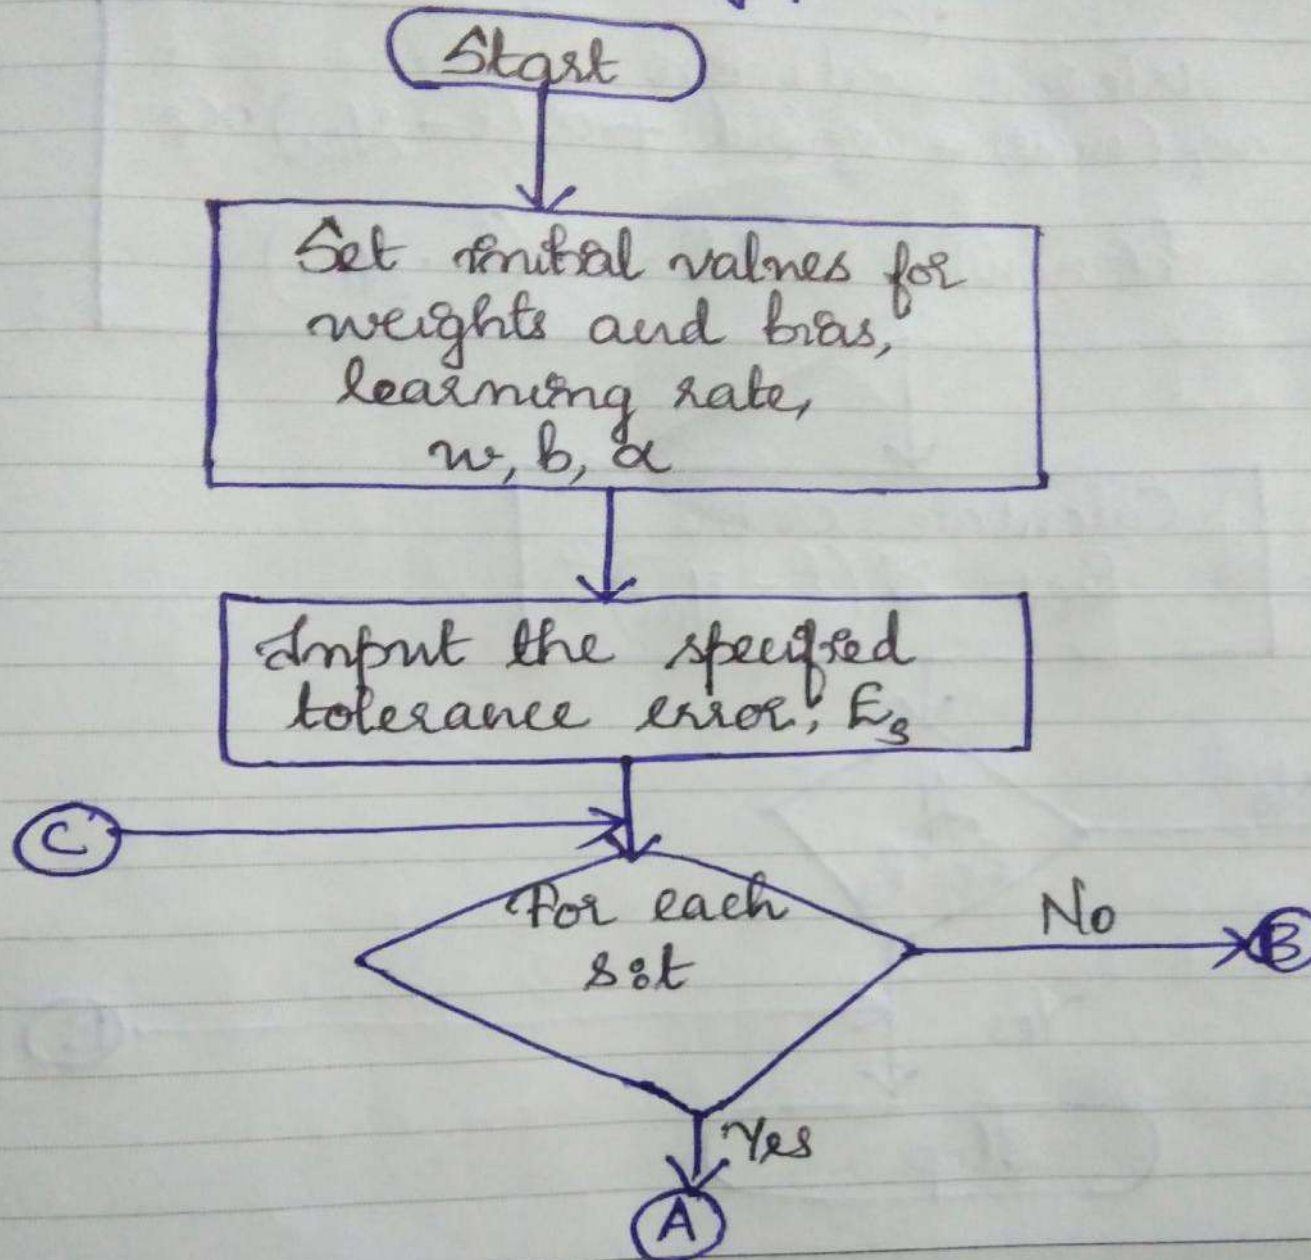 Start
Set initial values for
weights and bias,
learning rate,
w, b, α
Input the specified
tolerance error, Es
C
For each
s:t
No
B
Yes
A